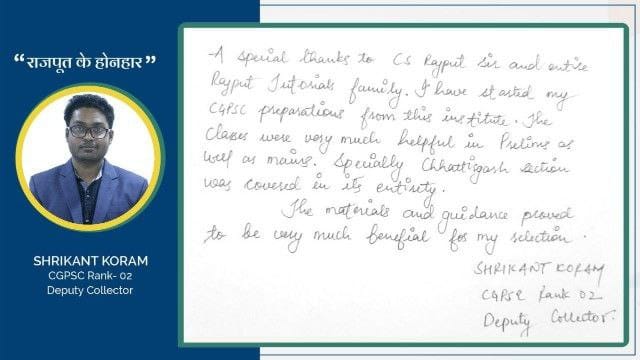 “राजपूत के होनहार”
SHRIKANT KORAM
CGPSC Rank- 02
Deputy Collector
A special thanks to CS Rajput Sir and entire
Rajput Tutorials family. I have started my
CGPSC preparations from this institute. The
Classes were very much helpful in Prelims as
well as mains. Specially Chhattisgarh section
was covered in its entirety.
The materials and guidance proved
to be very much benefial for my selection.
SHRIKANT KORAM
CGPSC Rank 02
Deputy Collector.